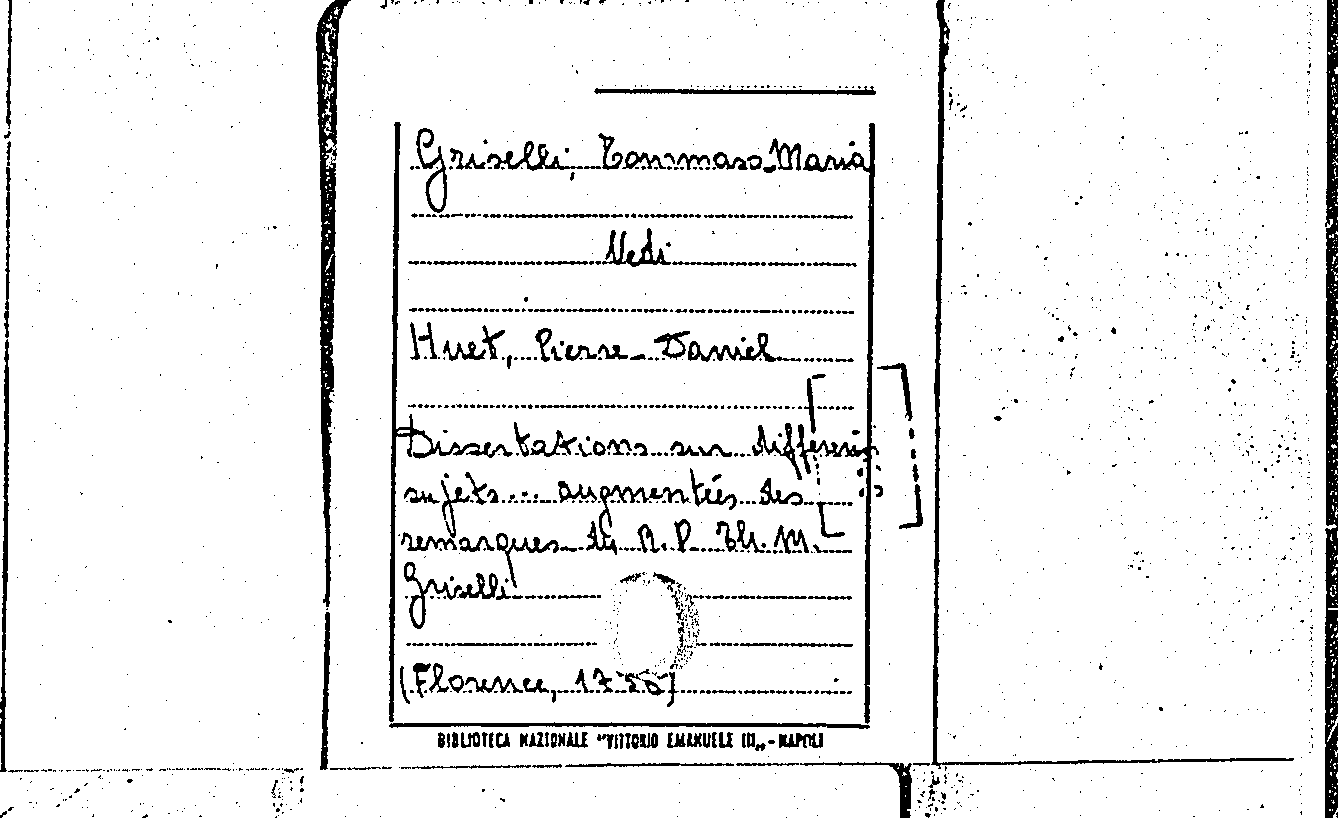 Griselli, Tommaso Maria
Vedi
Huet, Pierre Daniel
Dissertations sur differens
sujets... augmentées des
remarques du R. P. Th. M.
Griselli
(Florence, 17
BIBLIOTECA NAZIONALE "VITTORIO EMANUELE III„ - NAPOLI